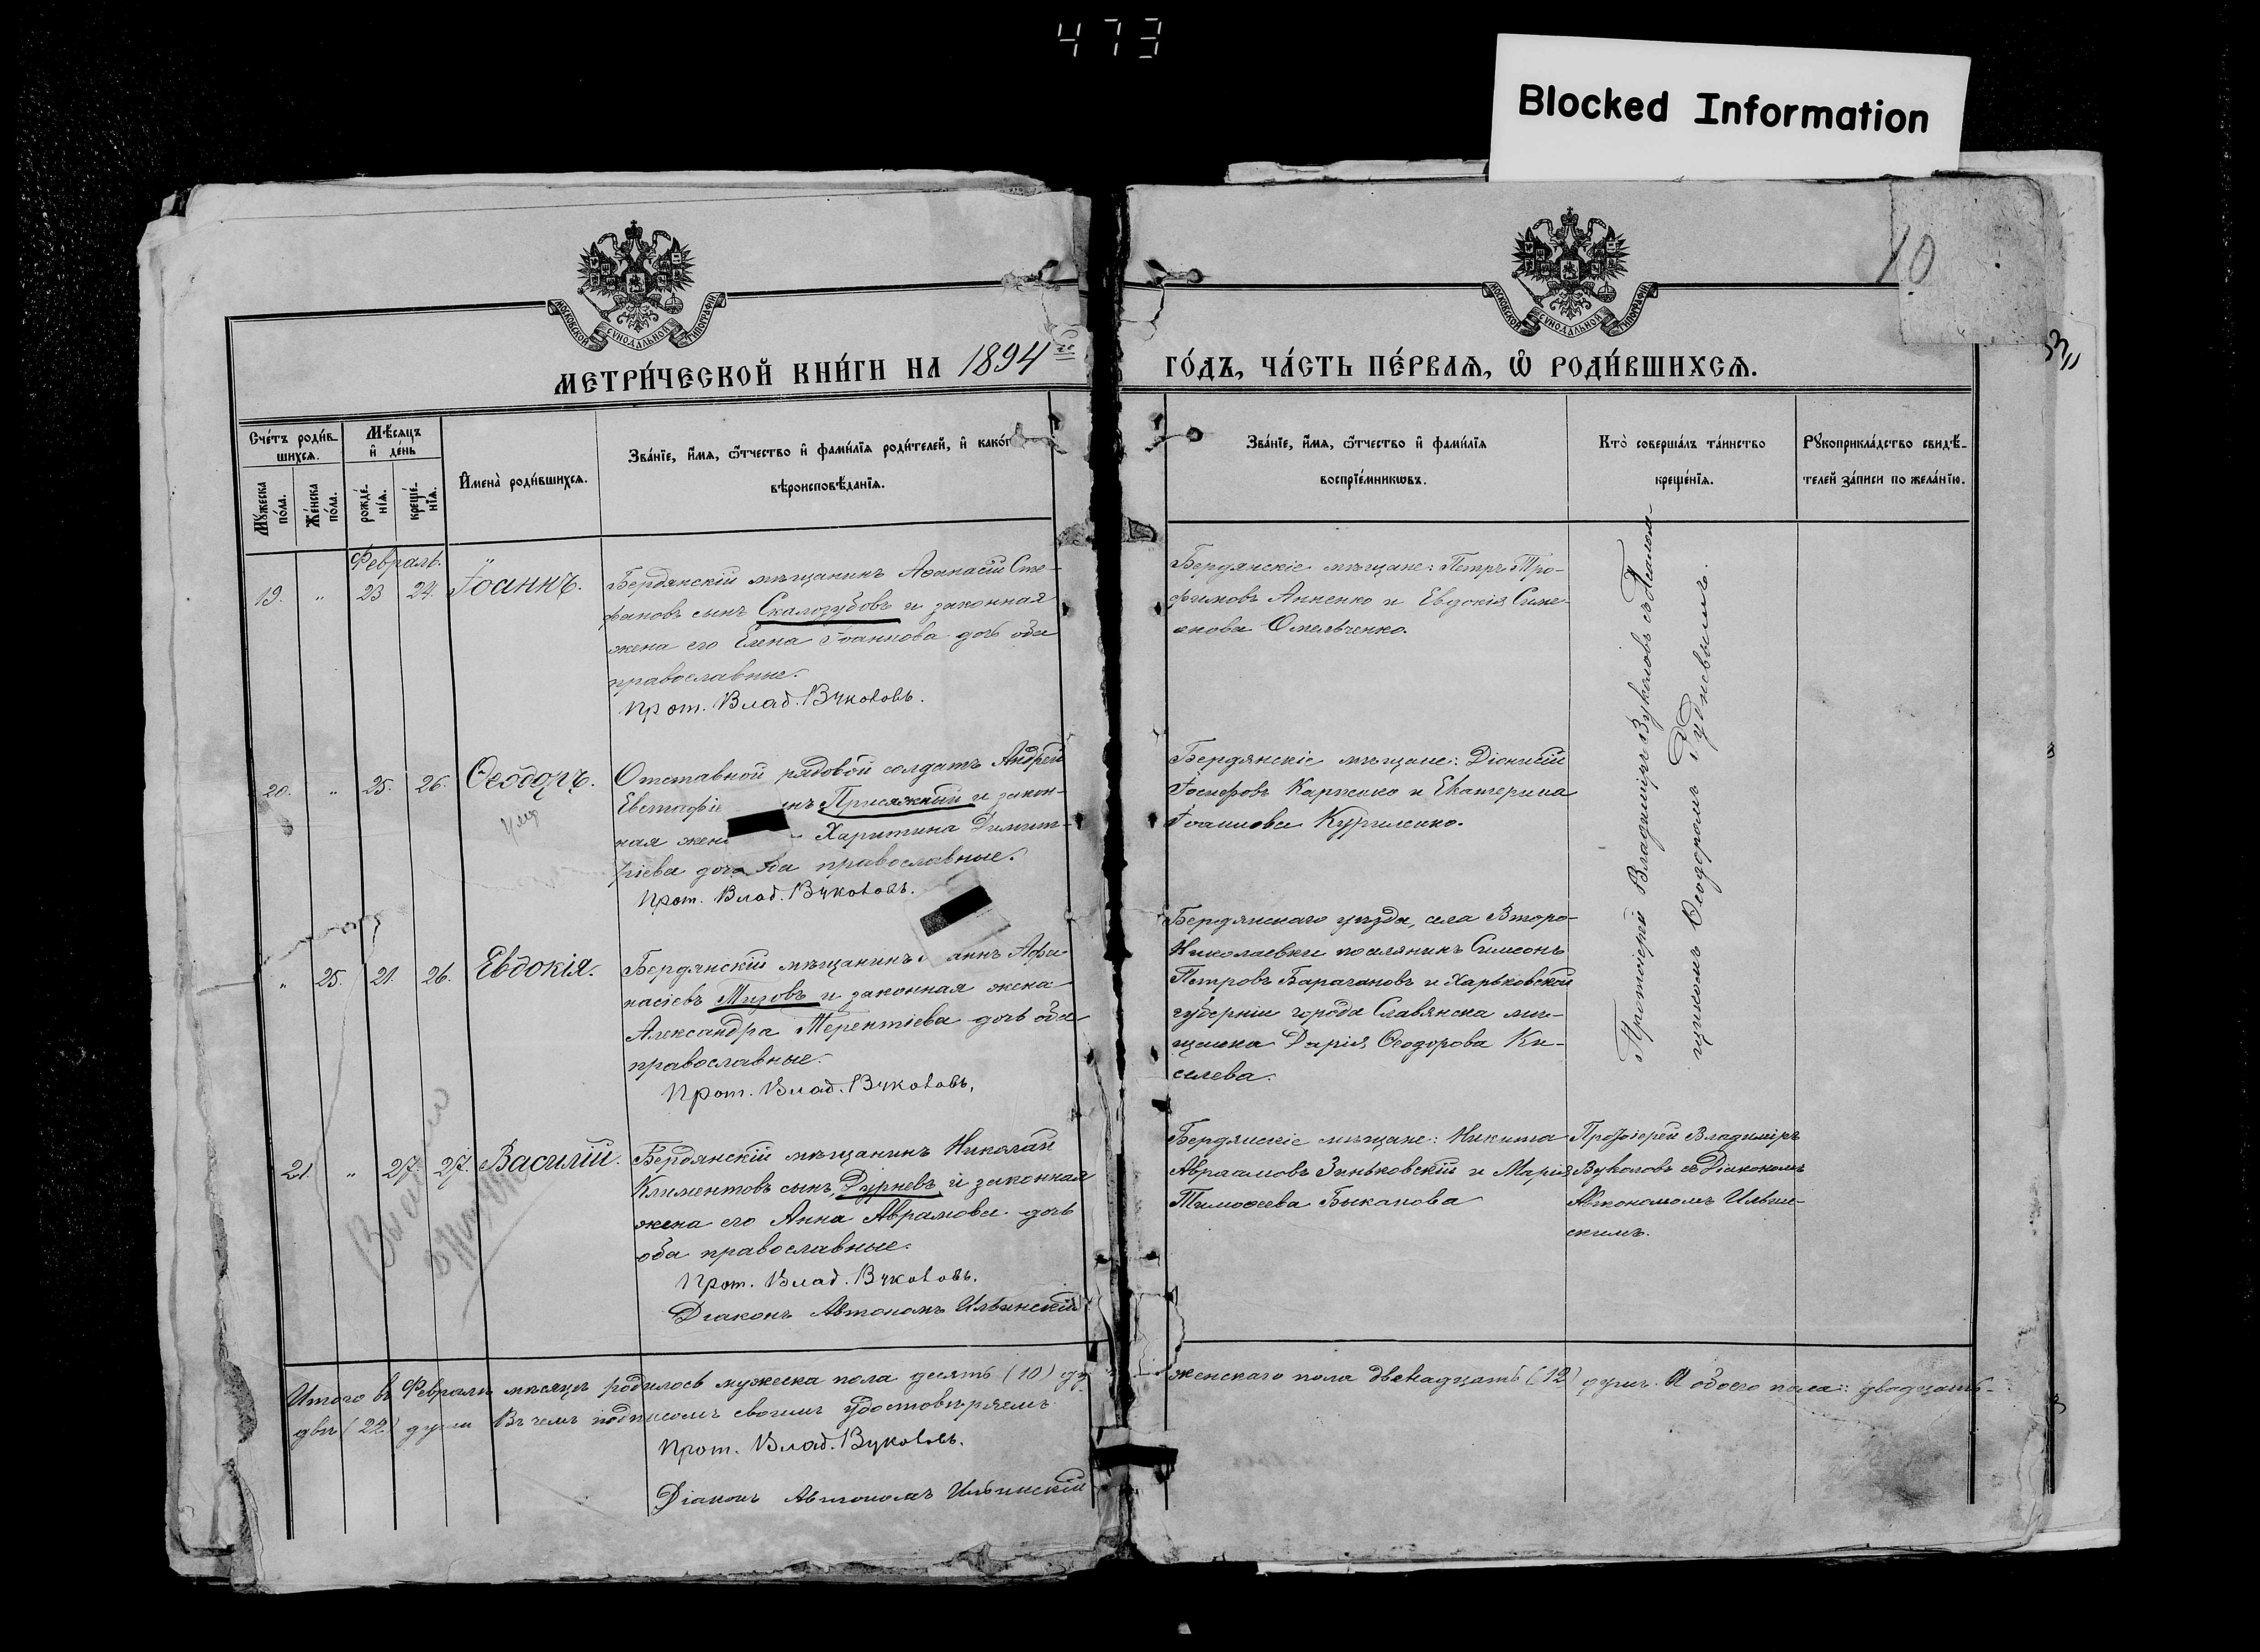 473
Blocked Information
10
МОСКОВСКОЙ СѴНОДАЛЬНОЙ ТИПОГРАФІИ
МОСКОВСКОЙ СѴНОДАЛЬНОЙ ТИПОГРАФІИ
МЕТРИ́ЧЕСКОЙ КНИ́ГИ НА 1894 й
ГО́ДЪ, ЧА́СТЬ ПЕ́РВАЯ, Ѡ РОДИ́ВШИХСЯ.
Сче́тъ роди́в-
шихся.
Мѣ́сяцъ
и де́нь
Му́жеска по́ла.
Же́нска по́ла.
рожде́-
нія.
креще́-
нія.
Имена̀ роди́вшихся.
Зва́ніе, и́мя, ѻ́тчество и фами́лія роди́телей, и како́г
вѣроисповѣ́данія.
Зва́ніе, и́мя, ѻ́тчество и фами́лія
воспріе́мниковъ.
Кто̀ соверша́лъ та́инство
креще́нія.
Рукоприкла́дство свидѣ́-
телей за́писи по жела́нію.
Февраль.
19. " 23 24. Іоаннъ.
Бердянскій мѣщанинъ Аѳанасій Сте-
фановъ сынъ Скалозубовъ и законная
жена его Елена Іоаннова дочь оба
православные.
Прот. Влад. Вуколовъ.
Бердянскіе мѣщане: Петръ Тро-
фимовъ Анненко и Евдокія Симе-
онова Омельченко.
20. " 25. 26. Ѳеодоръ.
Отставной рядовой солдатъ Андрей
Евстафіе нъ Присяжный и закон-
ная жен Харитина Димит-
ріева дочь оба православные.
Прот. Влад. Вуколовъ.
Бердянскіе мѣщане: Діонисій
Іосифовъ Карпенко и Екатерина
Іоаннова Куриленко.
" 25. 21. 26. Евдокія.
Бердянскій мѣщанинъ аннъ Афа-
насіевъ Мизовъ и законная жена
Александра Терентіева дочь оба
православные.
Прот. Влад. Вуколовъ.
Бердянскаго уѣзда, села Второ-
Николаевки поселянинъ Симеонъ
Петровъ Барагановъ и Харьковской
губерніи города Славянска мѣ-
щанка Дарія Ѳеодорова Ки-
селева.
Протоіерей Владиміръ Вуколовъ съ Псалом-
щикомъ Ѳеодоромъ Рудневымъ.
21. " 27. 27. Василій.
Бердянскій мѣщанинъ Николай
Климентовъ сынъ Дурневъ и законная
жена его Анна Аврамова дочь
оба православные.
Прот. Влад. Вуколовъ.
Діаконъ Автономъ Ильинскій
Бердянскіе мѣщане: Никита
Авраамовъ Зиньковскій и Марія
Тимоѳеева Быканова
Протоіерей Владиміръ
Вуколовъ съ Діакономъ
Автономомъ Ильин-
скимъ.
Итого въ Февралѣ мѣсяцѣ родилось мужеска пола десять (10) ду женскаго пола двенадцать (12) душъ. А обоего пола: двадцать-
двѣ (22) души Въ чемъ подписомъ своимъ удостовѣряемъ
Прот. Влад. Вуколовъ.
Діаконъ Автономъ Ильинскій